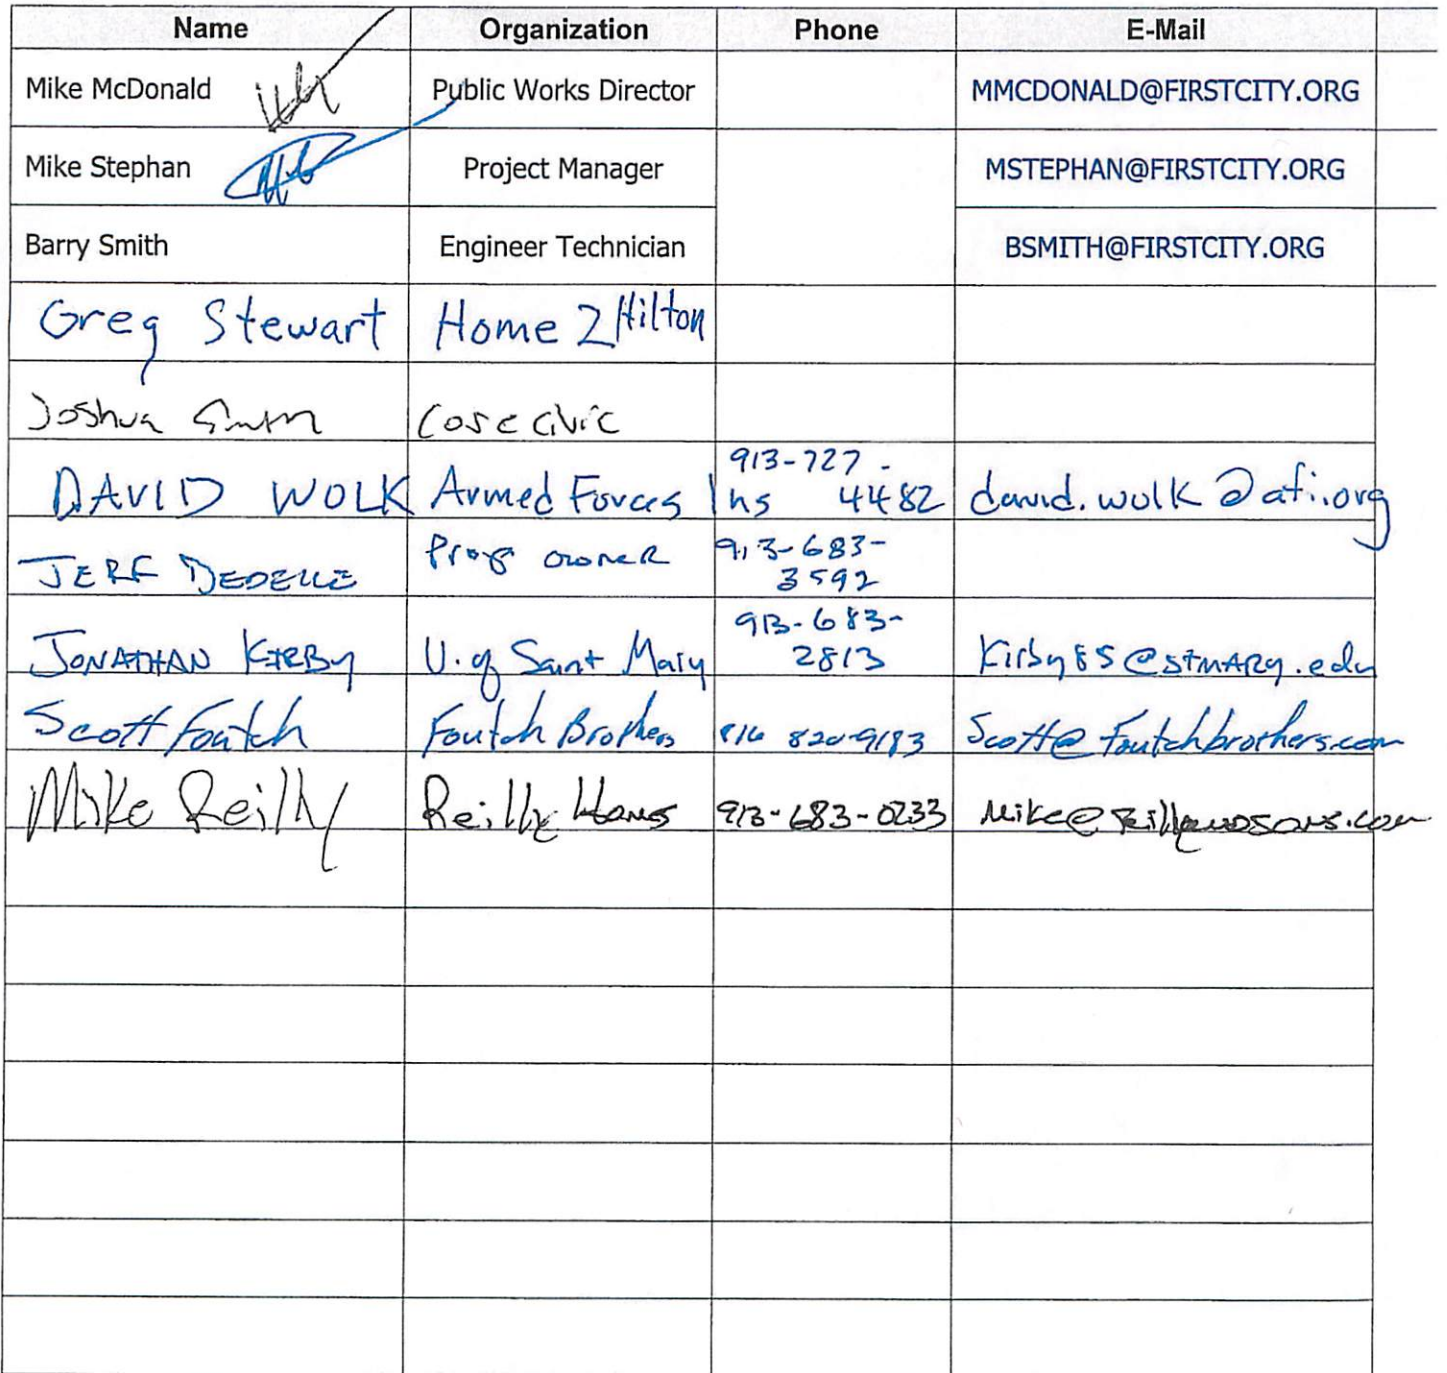 Name Organization Phone E-Mail
Mike McDonald Public Works Director MMCDONALD@FIRSTCITY.ORG
Mike Stephan Project Manager MSTEPHAN@FIRSTCITY.ORG
Barry Smith Engineer Technician BSMITH@FIRSTCITY.ORG
Greg Stewart Home 2 Hilton
Joshua Civic
913-727-
DAVID WOLK Armed Forces Ins 4482 david.wolk@afi.org
Prop owner 913-683-
JERF DEDEKE 3592
913-683-
JONATHAN KIRBY U. of Saint Mary 2813 Kirby85@stmary.edu
Scott Foutch Foutch Brothers 816 820-9183 Scott@foutchbrothers.com
Mike Reilly Reilly Homes 913-683-0233 Mike@